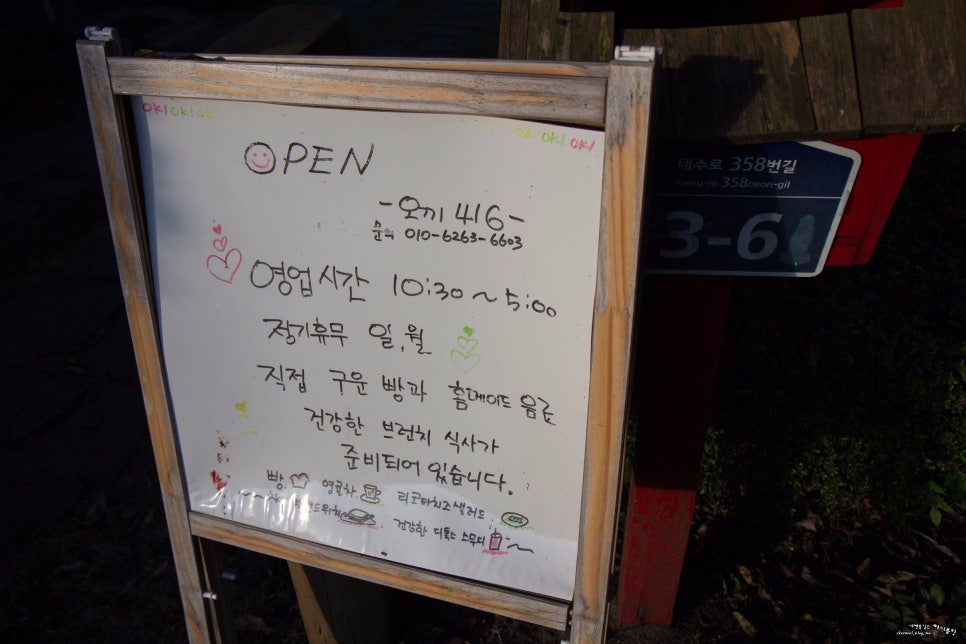 OKI OKI OKI
OKI OKI OKI
OPEN
-오끼 416-
문의 010-6263-6603
영업시간 10:30~5:00
정기휴무 일,월
직접 구운 빵과 홈메이드 음료
건강한 브런치 식사가
준비되어 있습니다.
빵 영귤차 리코타치즈샐러드
건강한 디톡스 스무디~
태수로 358번길
Taesu-ro 358beon-gil
3-6